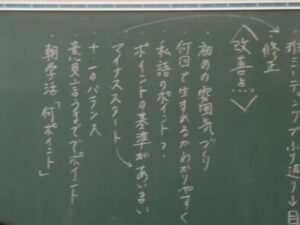 班ミーティングでふり返り→目
修正
〈改善点〉
・初めの雰囲気づくり
・何回で生まれるかわかりやすく
・私語のポイント?
・ポイントの基準があいまい
マイナススタート
・十一のバランス
・意見言うまでポイント
・朝学活「何ポイント」